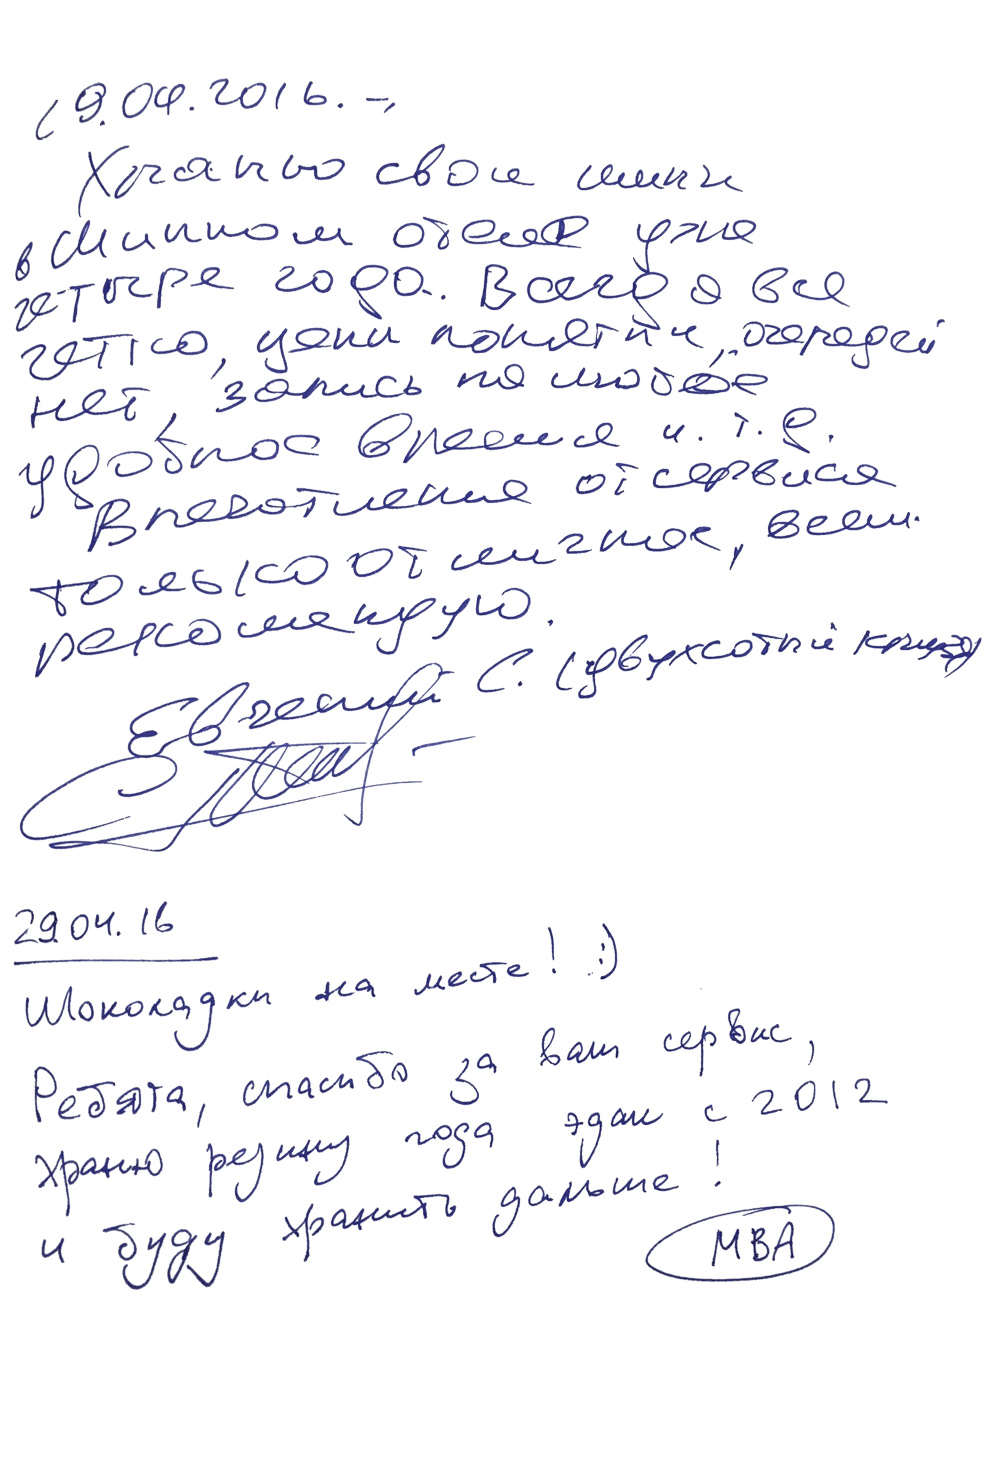 19.04.2016.
Храню свои шины
в Шинном отеле уже
четыре года. Всегда все
четко, цены понятны, очередей
нет, запись на любое
удобное время и.т.д.
Впечатления от сервиса
только отличное, всем
рекомендую.
Евгений С. (двухсотый
29.04.16
Шоколадки на месте! :)
Ребята, спасибо за ваш сервис,
храню резину года эдак с 2012
и буду хранить дальше!
МВА